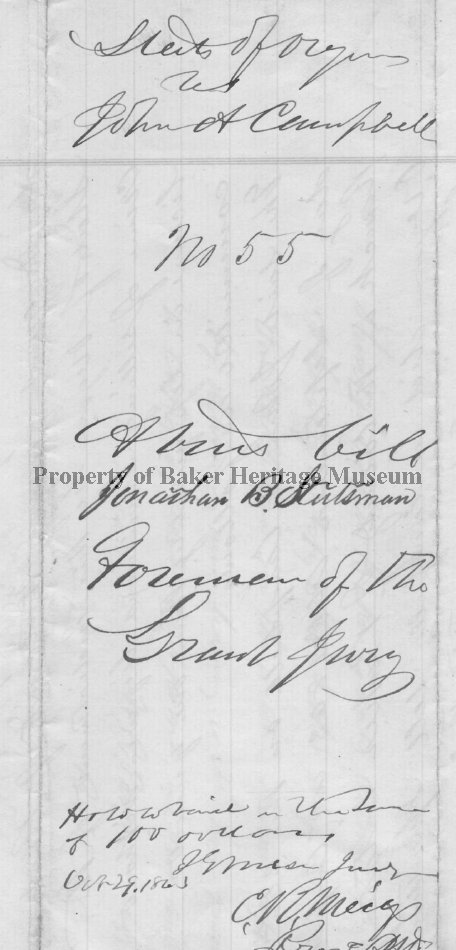 State of Oregon
vs
John A Campbell
No 55
A true bill
Property of Baker Heritage Museum
Jonathan B. Stutsman
Foreman of the
Grand Jury
Held to bail in the sum
of 100 dollars
Oct 29, 1863
C. R. Meigs